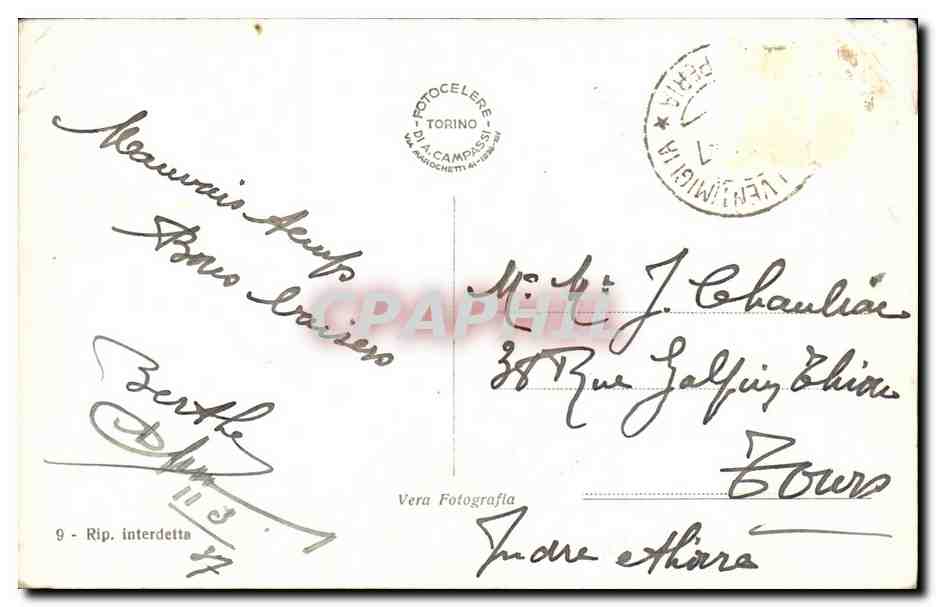 FOTOCELERE
TORINO
DI A. CAMPASSI
VIA MAROCHETTI 41
VENTIMIGLIA ★
PERIA
7
Mauvais temps
Bons baisers
Berthe
11 3
37
CPARHIL
M. Me J. Chauliac
38 Rue Galpin Thiou
Tours
Indre et Loire
Vera Fotografia
9 - Rip. interdetta